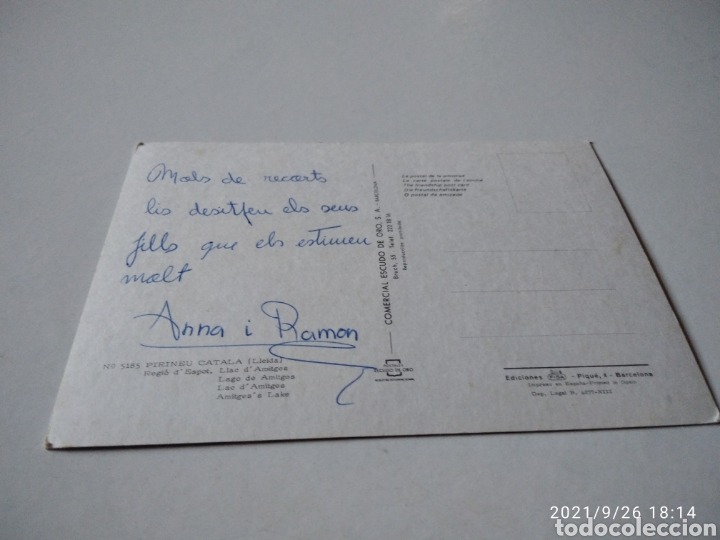 Mols de recorts
lis desitjen els seus
fills que els estimen
molt
Anna i Ramon
Nº 5183 PIRINEU CATALA (Lleida)
Regió d'Espot, Llac d'Amitges
Lago de Amitges
Lac d'Amitges
Amitges's Lake
COMERCIAL ESCUDO DE ORO, S. A. - BARCELONA
Reproducción prohibida
La postal de la amistad
La carte postale de l'amitié
The friendship post card
Die Freundschaftskarte
ESCUDO DE ORO
Ediciones - Piqué, 1 - Barcelona
Impreso en España - Printed in Spain
2021/9/26 18:14
todocoleccion